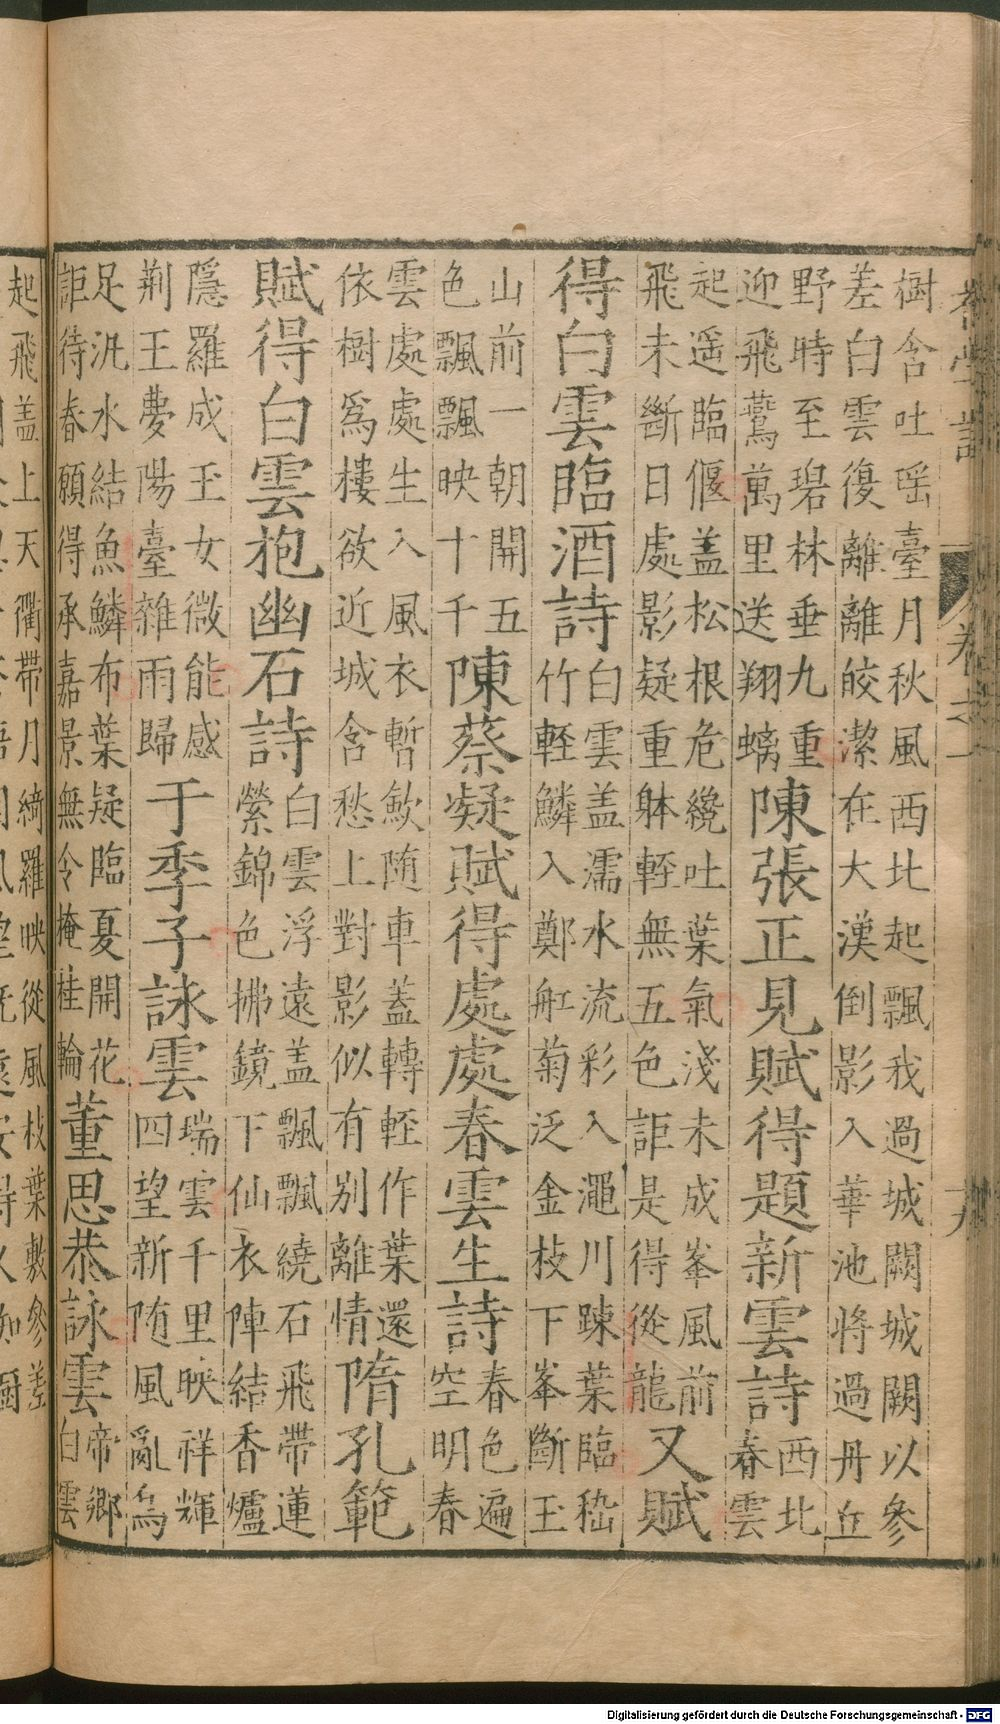 初學記 卷之一
樹含吐瑶臺月秋風西北起飄我過城闕城闕以參
差白雲復離離皎潔在大漢倒影入華池將過丹丘
野時至碧林垂九重
迎飛鸞萬里送翔螭
陳張正見賦得題新雲詩
西北
春雲
起遥臨偃盖松根危纔吐葉氣淺未成峯風前
飛未斷日處影疑重躰輊無五色詎是得從龍
又賦
得白雲臨酒詩
白雲盖濡水流彩入澠川踈葉臨嵇
竹輊鱗入鄭舡菊泛金枝下峯斷玉
山前一朝開五
色飄飄映十千
陳蔡凝賦得處處春雲生詩
春色遍
空明春
雲處處生入風衣暫歛随車蓋轉輊作葉還
依樹爲樓欲近城含愁上對影似有别離情
隋孔範
賦得白雲抱幽石詩
白雲浮遠盖飄飄繞石飛帶蓮
縈錦色拂鏡下仙衣陣結香爐
隱羅成玉女微能感
荆王夢陽臺雜雨歸
于季子詠雲
瑞雲千里映祥輝
四望新随風亂鳥
足汎水結魚鱗布葉疑臨夏開花
詎待春願得承嘉景無令掩桂輪
董思恭詠雲
帝鄉
白雲
起飛盖上天衢帶月綺羅映從風枝葉敷參差
Digitalisierung gefördert durch die Deutsche Forschungsgemeinschaft - DFG